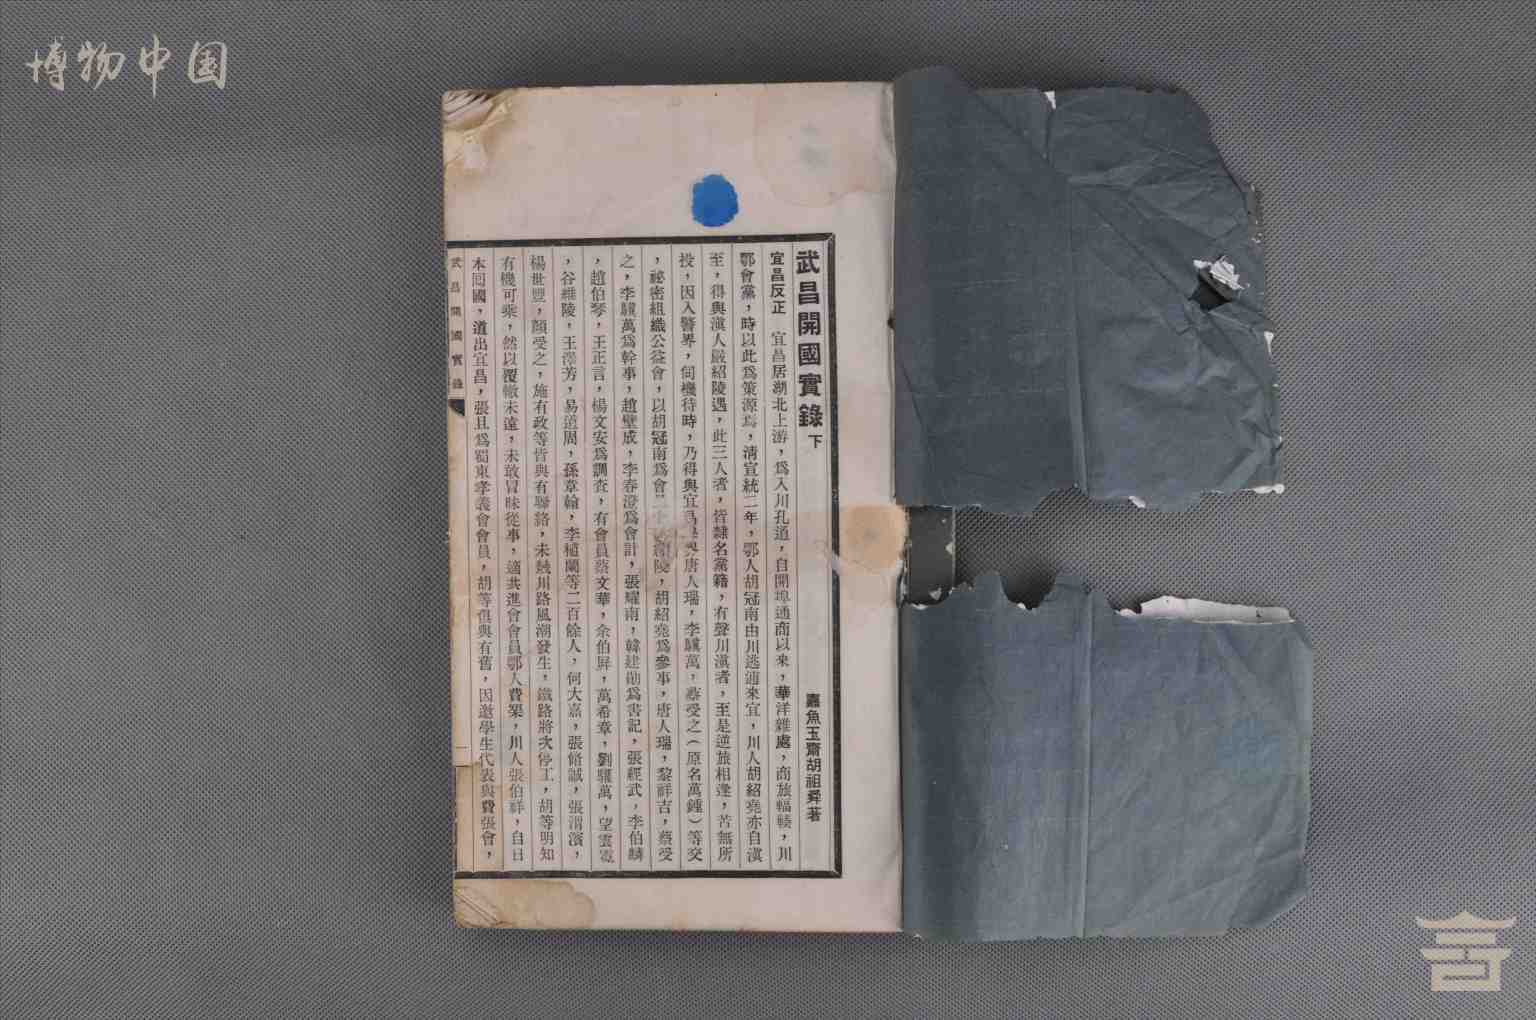 博物中国
武昌開國實錄下
嘉魚玉齋胡祖舜著
宜昌反正　宜昌居湖北上游，爲入川孔道，自開埠通商以來，華洋雜處，商旅輻輳，川
鄂會黨，時以此爲策源焉，淸宣統二年，鄂人胡冠南由川逃逋來宜，川人胡紹堯亦自滇
至，得與滇人嚴紹陵遇，此三人者，皆隸名黨籍，有聲川滇者，至是逆旅相逢，苦無所
投，因入警界，伺機待時，乃得與宜昌 唐人瑞，李驥萬，蔡受之（原名萬鍾）等交
，祕密組織公益會，以胡冠南爲會 陵，胡紹堯爲參事，唐人瑞，黎祥吉，蔡受
之，李驥萬爲幹事，趙璧成，李春澄爲會計，張耀南，韓建勛爲書記，張經武，李伯麟
，趙伯琴，王正言，楊文安爲調查，有會員蔡文華，余伯屏，萬希章，劉驥萬，望雲霓
，谷維陵，王澤芳，易道周，孫韋翰，李植蘭等二百餘人，何大嘉，張脩誠，張渭濱，
楊世豐，顏受之，施有政等皆與有聯絡，未幾川路風潮發生，鐵路將次停工，胡等明知
有機可乘，然以覆轍未遠，未敢冒昧從事，適共進會會員鄂人費榘，川人張伯祥，自日
本回國，道出宜昌，張且爲蜀東孝義會會員，胡等俱與有舊，因邀學生代表與費張會，
武昌開國實錄
一